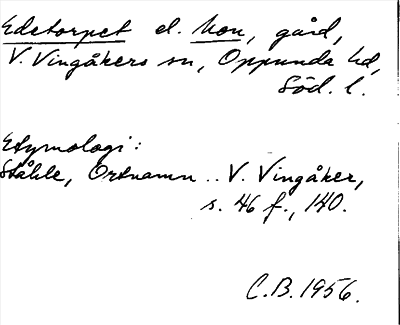 Edetorpet el. Mon, gård,
V. Vingåkers sn, Oppunda hd,
Söd. l.
Etymologi:
Ståhle, Ortnamn .. V. Vingåker,
s. 46 f., 140.
C.B. 1956.